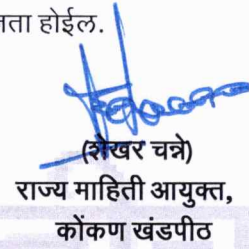 नता होईल.
(शेखर चन्ने)
राज्य माहिती आयुक्त,
कोंकण खंडपीठ